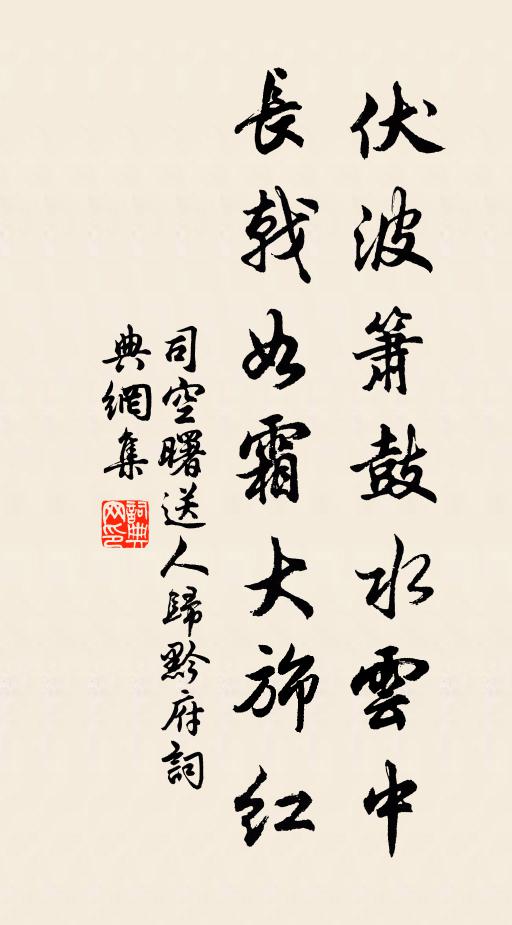 伏波箫鼓水雲中
長戟如霜大旆紅
司空曙送人歸黔府詞
典網集
詞典网印